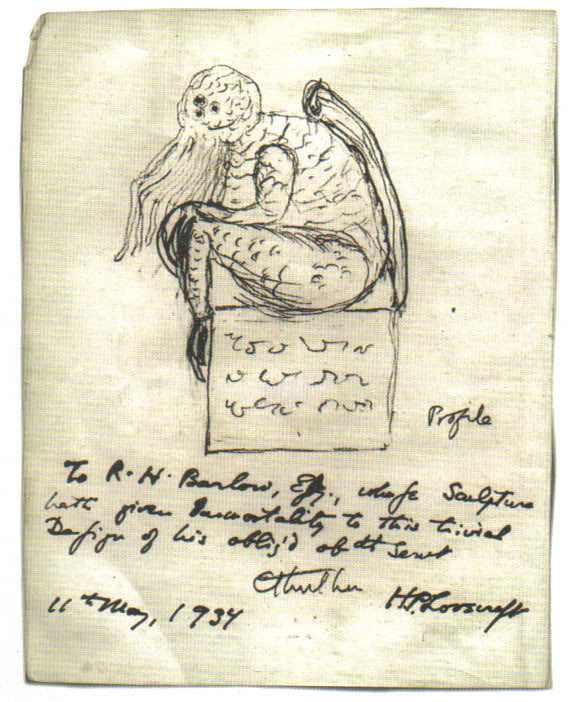 Profile
To R. H. Barlow, Esq., whose Sculpture
hath given Immortality to this trivial
Design of his oblig'd obdt Servt
Cthulhu H.P.Lovecraft
11th May, 1934